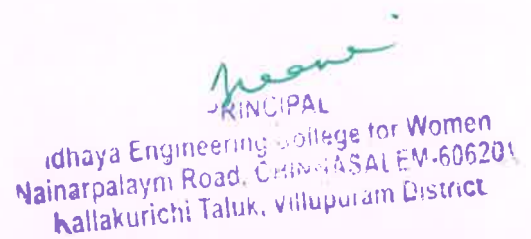 PRINCIPAL
idhaya Engineering College for Women
Nainarpalaym Road, CHINNASALEM-606201
Kallakurichi Taluk, Villupuram District